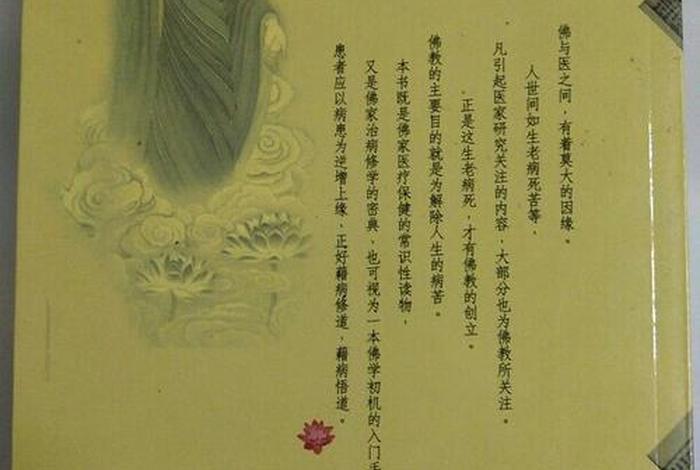 佛与医之间，有着莫大的因缘。
人世间如生老病死苦等，
凡引起医家研究关注的内容，大部分也为佛教所关注。
正是这生老病死，才有佛教的创立。
佛教的主要目的就是为解除人生的病苦。
本书既是佛家医疗保健的常识性读物，
又是佛家治病修学的密典，也可视为一本佛学初机的入门手
患者应以病患为逆增上缘，正好藉病修道，藉病悟道。